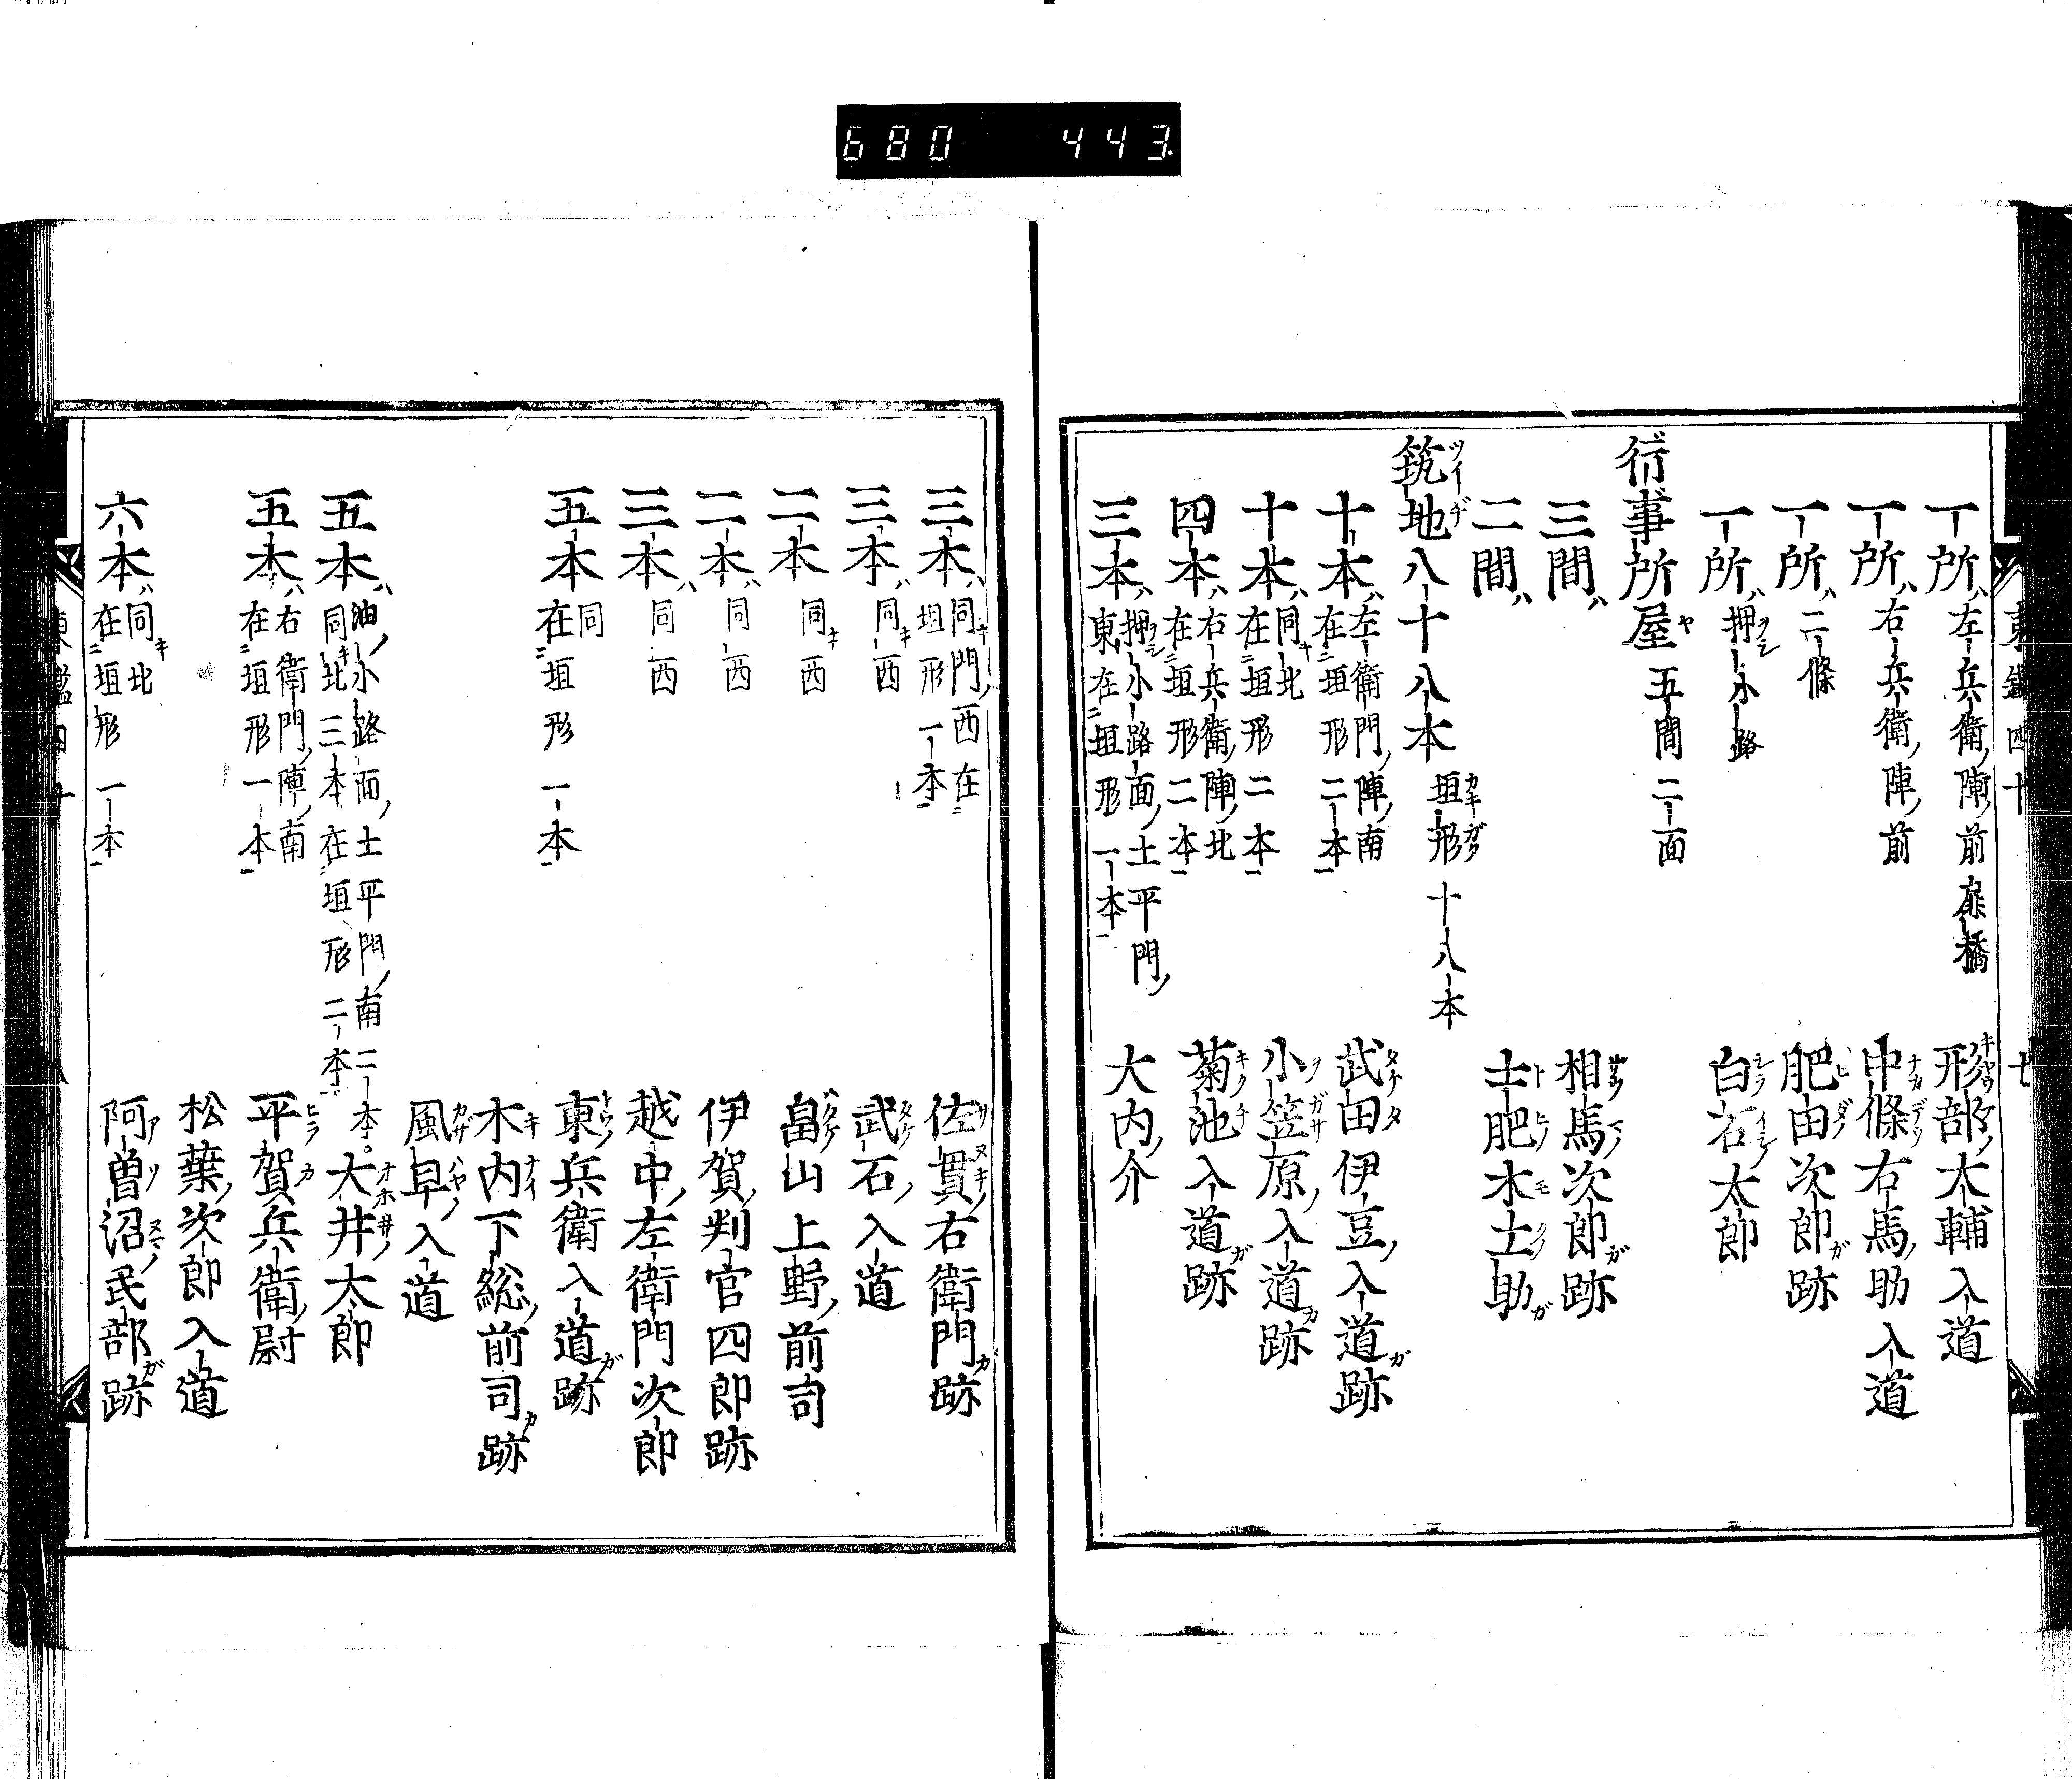 680 443
一所ハ左兵衛ノ陣ノ前 橋 刑部ノ大輔入道
一所ハ右兵衛ノ陣ノ前 中條右馬ノ助入道
一所ハ二條 肥田次郎ガ跡
一所ハ押小路 白石太郎
行事所屋 五間二面
三間ハ 相馬次郎ガ跡
二間ハ 土肥木工助ガ
筑地八十八本 垣形十八本
十本ハ左衛門ノ陣ノ南在垣形二本 武田伊豆ノ入道ガ跡
十本ハ同北在垣形二本 小笠原ノ入道ガ跡
四本ハ右兵衛ノ陣ノ北在垣形二本 菊池入道ガ跡
三本ハ押小路面ノ土平門ノ東在垣形一本 大内ノ介
三本ハ同門ノ西在垣形一本 佐貫ノ右衛門ガ跡
三本ハ同西 武石ノ入道
二本同西 畠山上野ノ前司
二本ハ同西 伊賀ノ判官四郎跡
三本ハ同西 越中ノ左衛門次郎
五本同在垣形一本 東ノ兵衛入道ガ跡
木内下総ノ前司ガ跡
風早ノ入道
五本ハ油ノ小路面ノ土平門ノ南二本同北三本在垣形二本 大井ノ太郎
五本ハ右衛門ノ陣ノ南在垣形一本 平賀兵衛ノ尉
松葉ノ次郎入道
六本ハ同北在垣形一本 阿曽沼ノ民部ガ跡